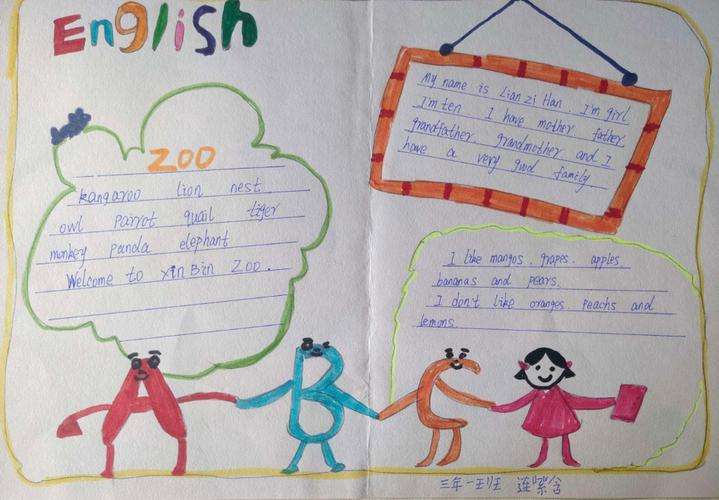 English
ZOO
kangaroo lion nest
owl parrot quail tiger
monkey panda elephant
Welcome to XinBin Zoo.
My name is Lian Zi Han. I'm girl
I'm ten I have mother father
grandfather grandmother and I
have a very good family
I like mangos. grapes. apples.
bananas and pears.
I don't like oranges peachs and
lemons.
A B C
三年一班 连